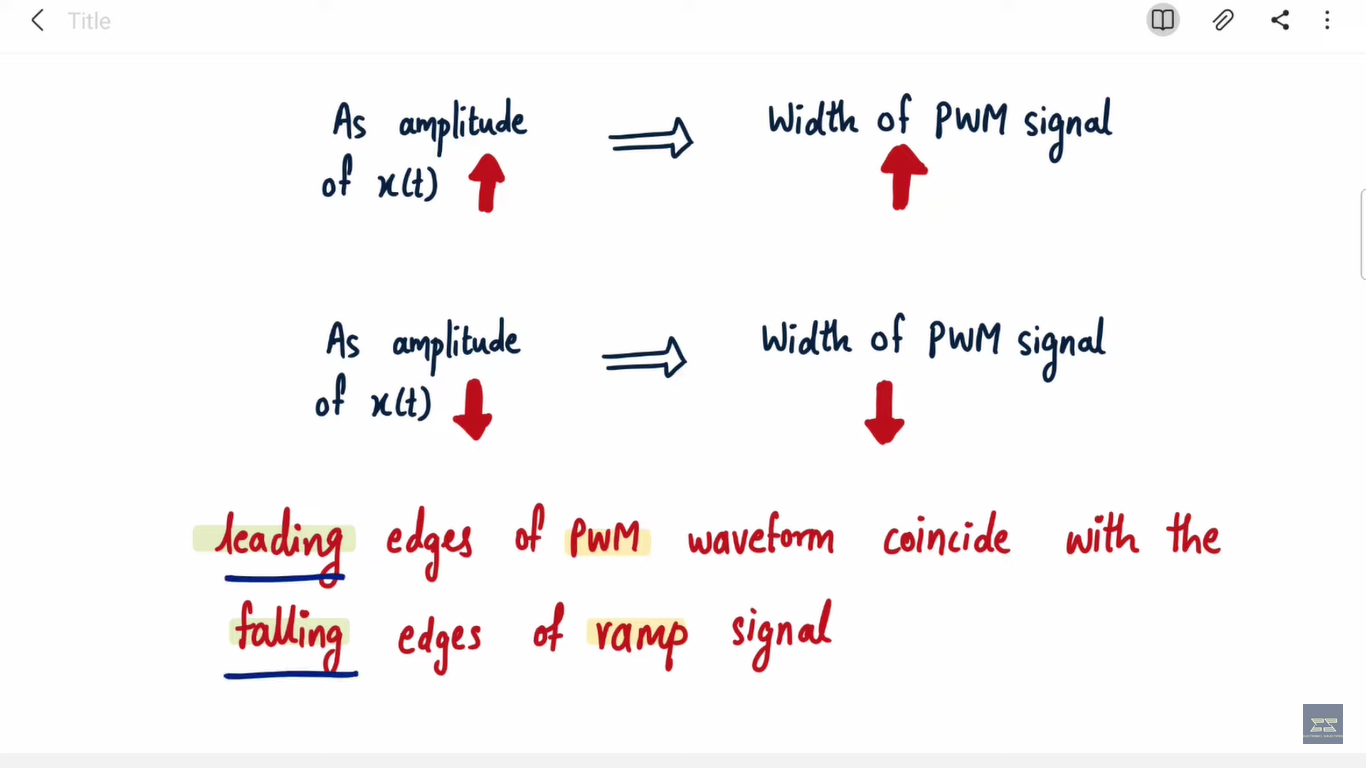 Title
As amplitude of x(t) ⟹ Width of PWM signal
As amplitude of x(t) ⟹ Width of PWM signal
leading edges of PWM waveform coincide with the
falling edges of ramp signal